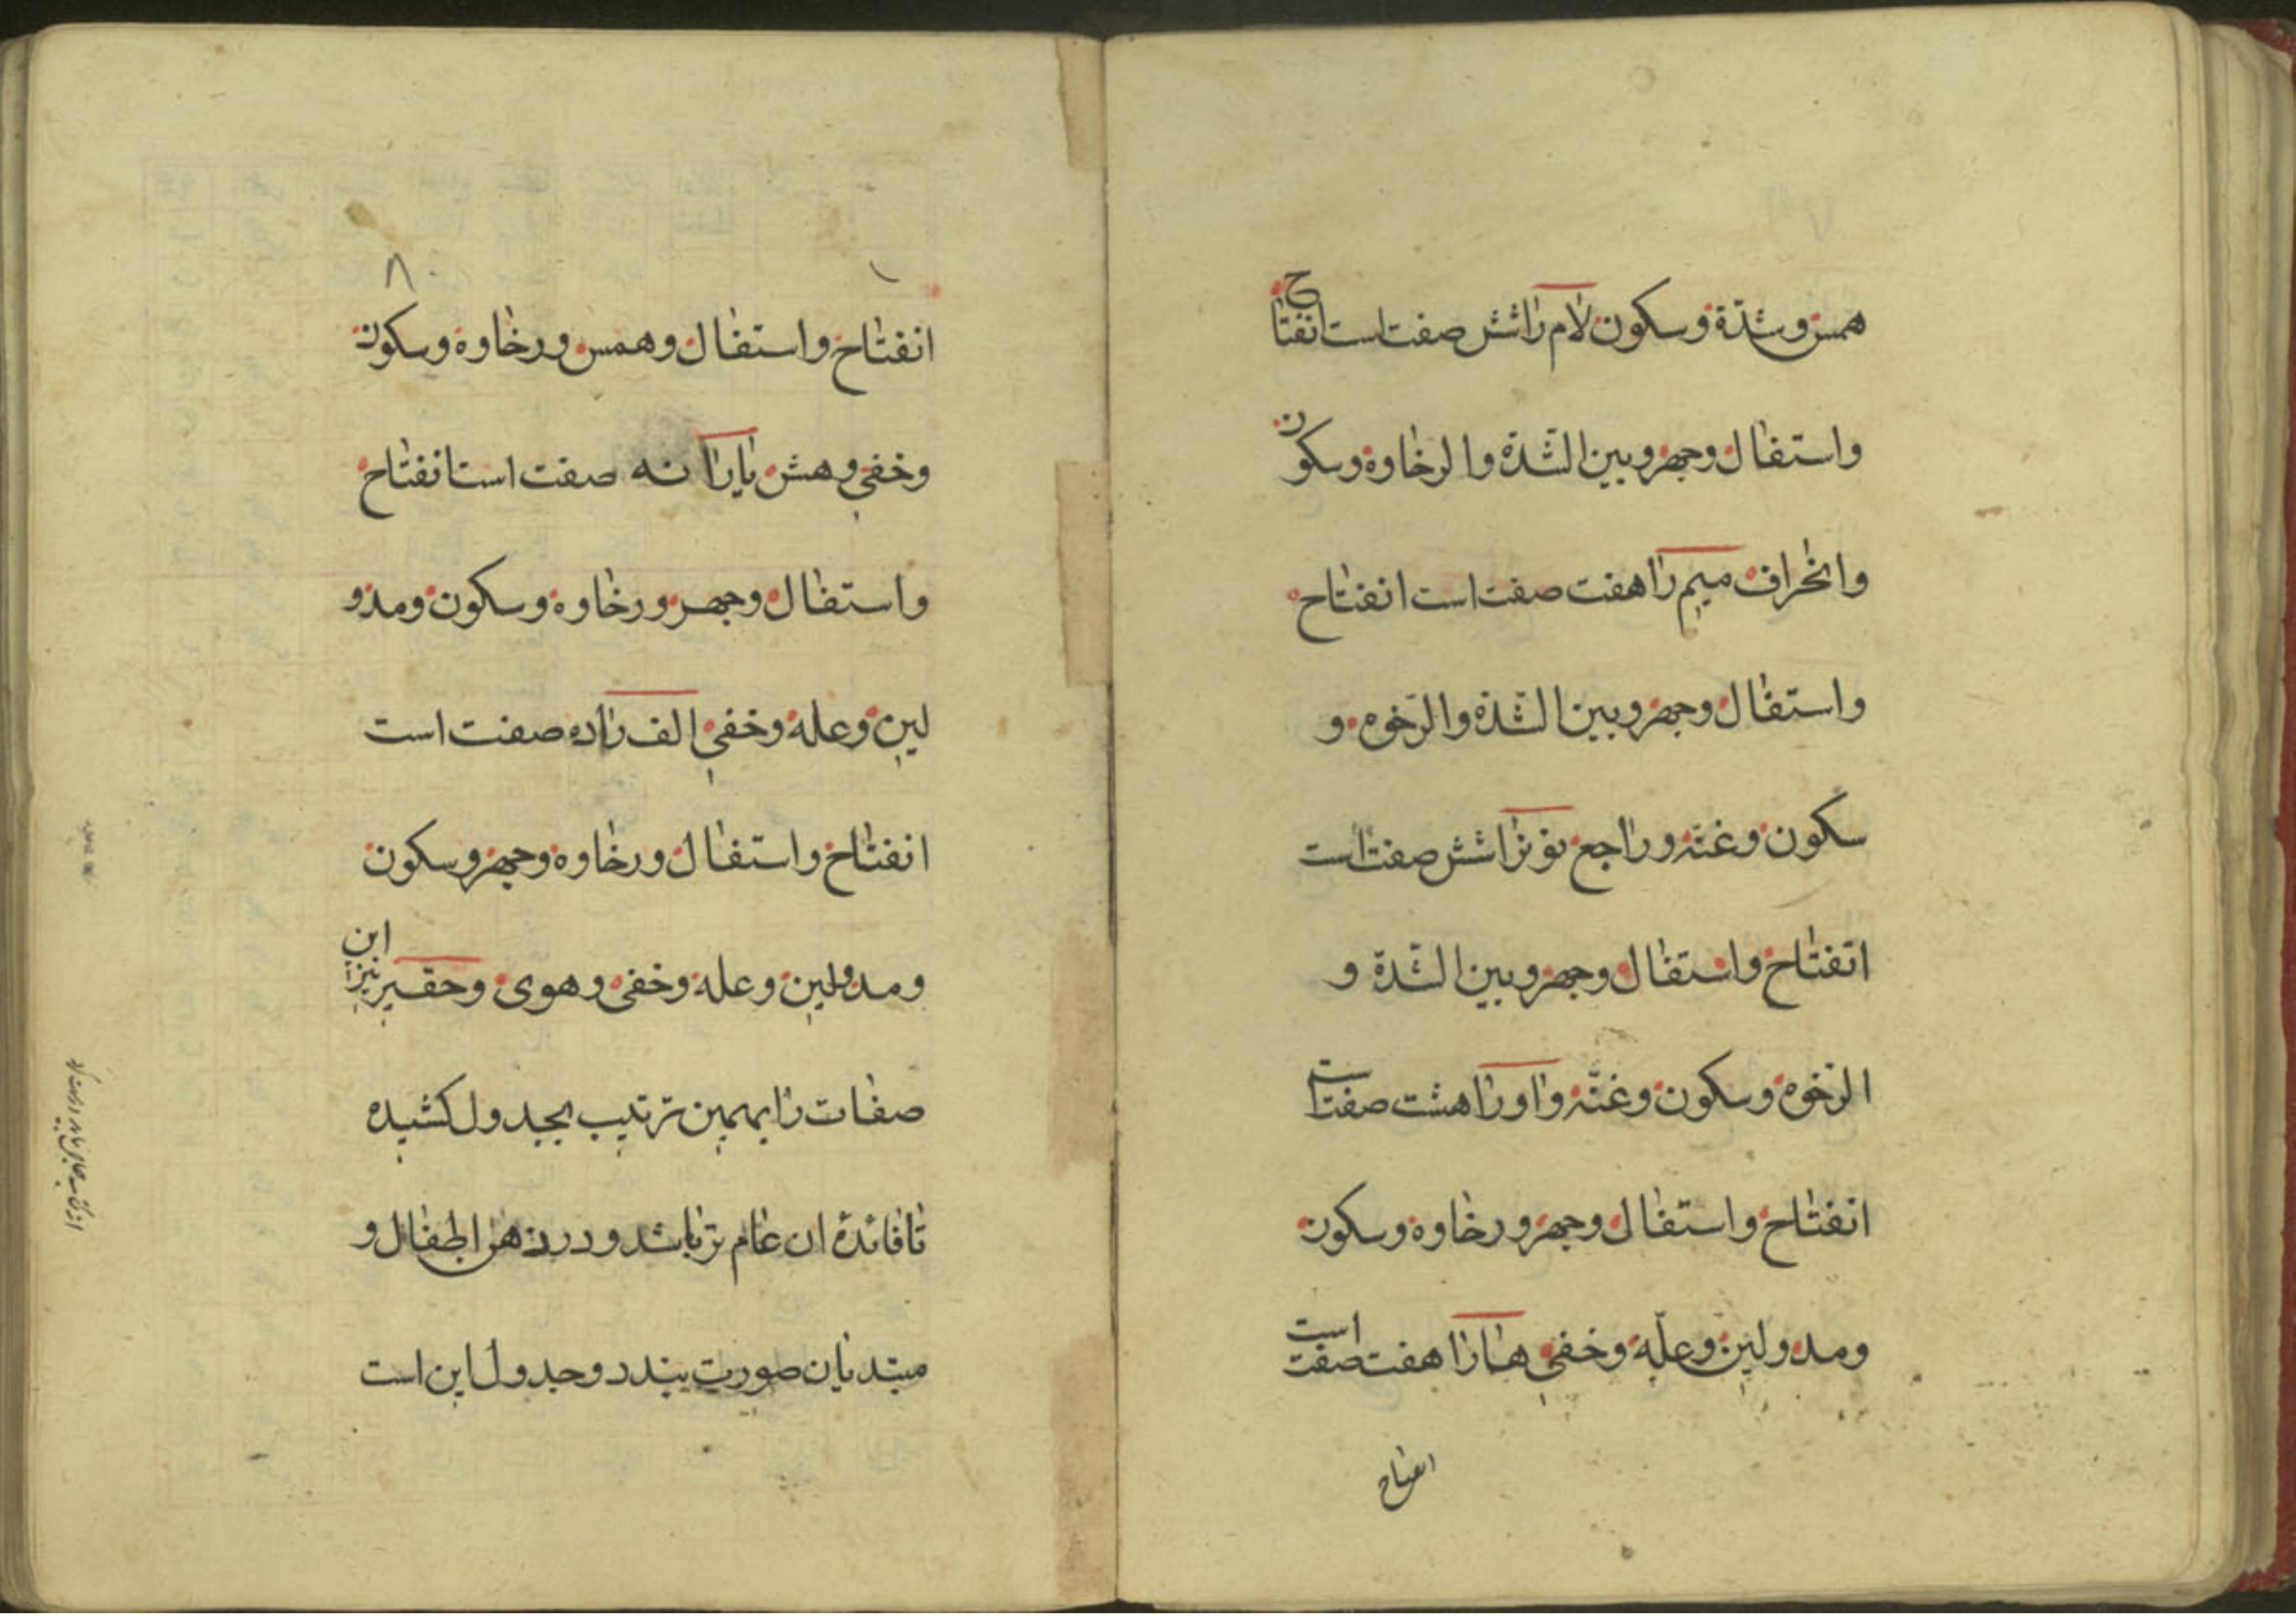 همس و شدّة و سکون لام را شش صفت است انفتاح
و استفال و جهر و بین الشّدة و الرخاوة و سکون
و انحراف میم را هفت صفت است انفتاح
و استفال و جهر و بین الشّدة و الرّخوه و
سکون و غنّه و راجع نونرا شش صفت است
انفتاح و استفال و جهر و بین الشّدّة و
الرّخوه و سکون و غنّه واو را هشت صفت است
انفتاح و استفال و جهر و رخاوه و سکون
و مد و لین و علّه و خفی ها را هفت صفت است
انفتاح
٨
انفتاح و استفال و همس و رخاوه و سکون
و خفی و هش یا را نه صفت است انفتاح
و استفال و جهر و رخاوه و سکون و مد و
لین و عله و خفی الف را ده صفت است
انفتاح و استفال و رخاوه و جهر و سکون
و مد و لین و عله و خفی و هوی و حقیر نیز این
صفات را بهمین ترتیب بجدول کشیده
تا فائدهٔ ان عام تر باشد و در ذهن اطفال و
مبتدیان صورت بندد و جدول این است